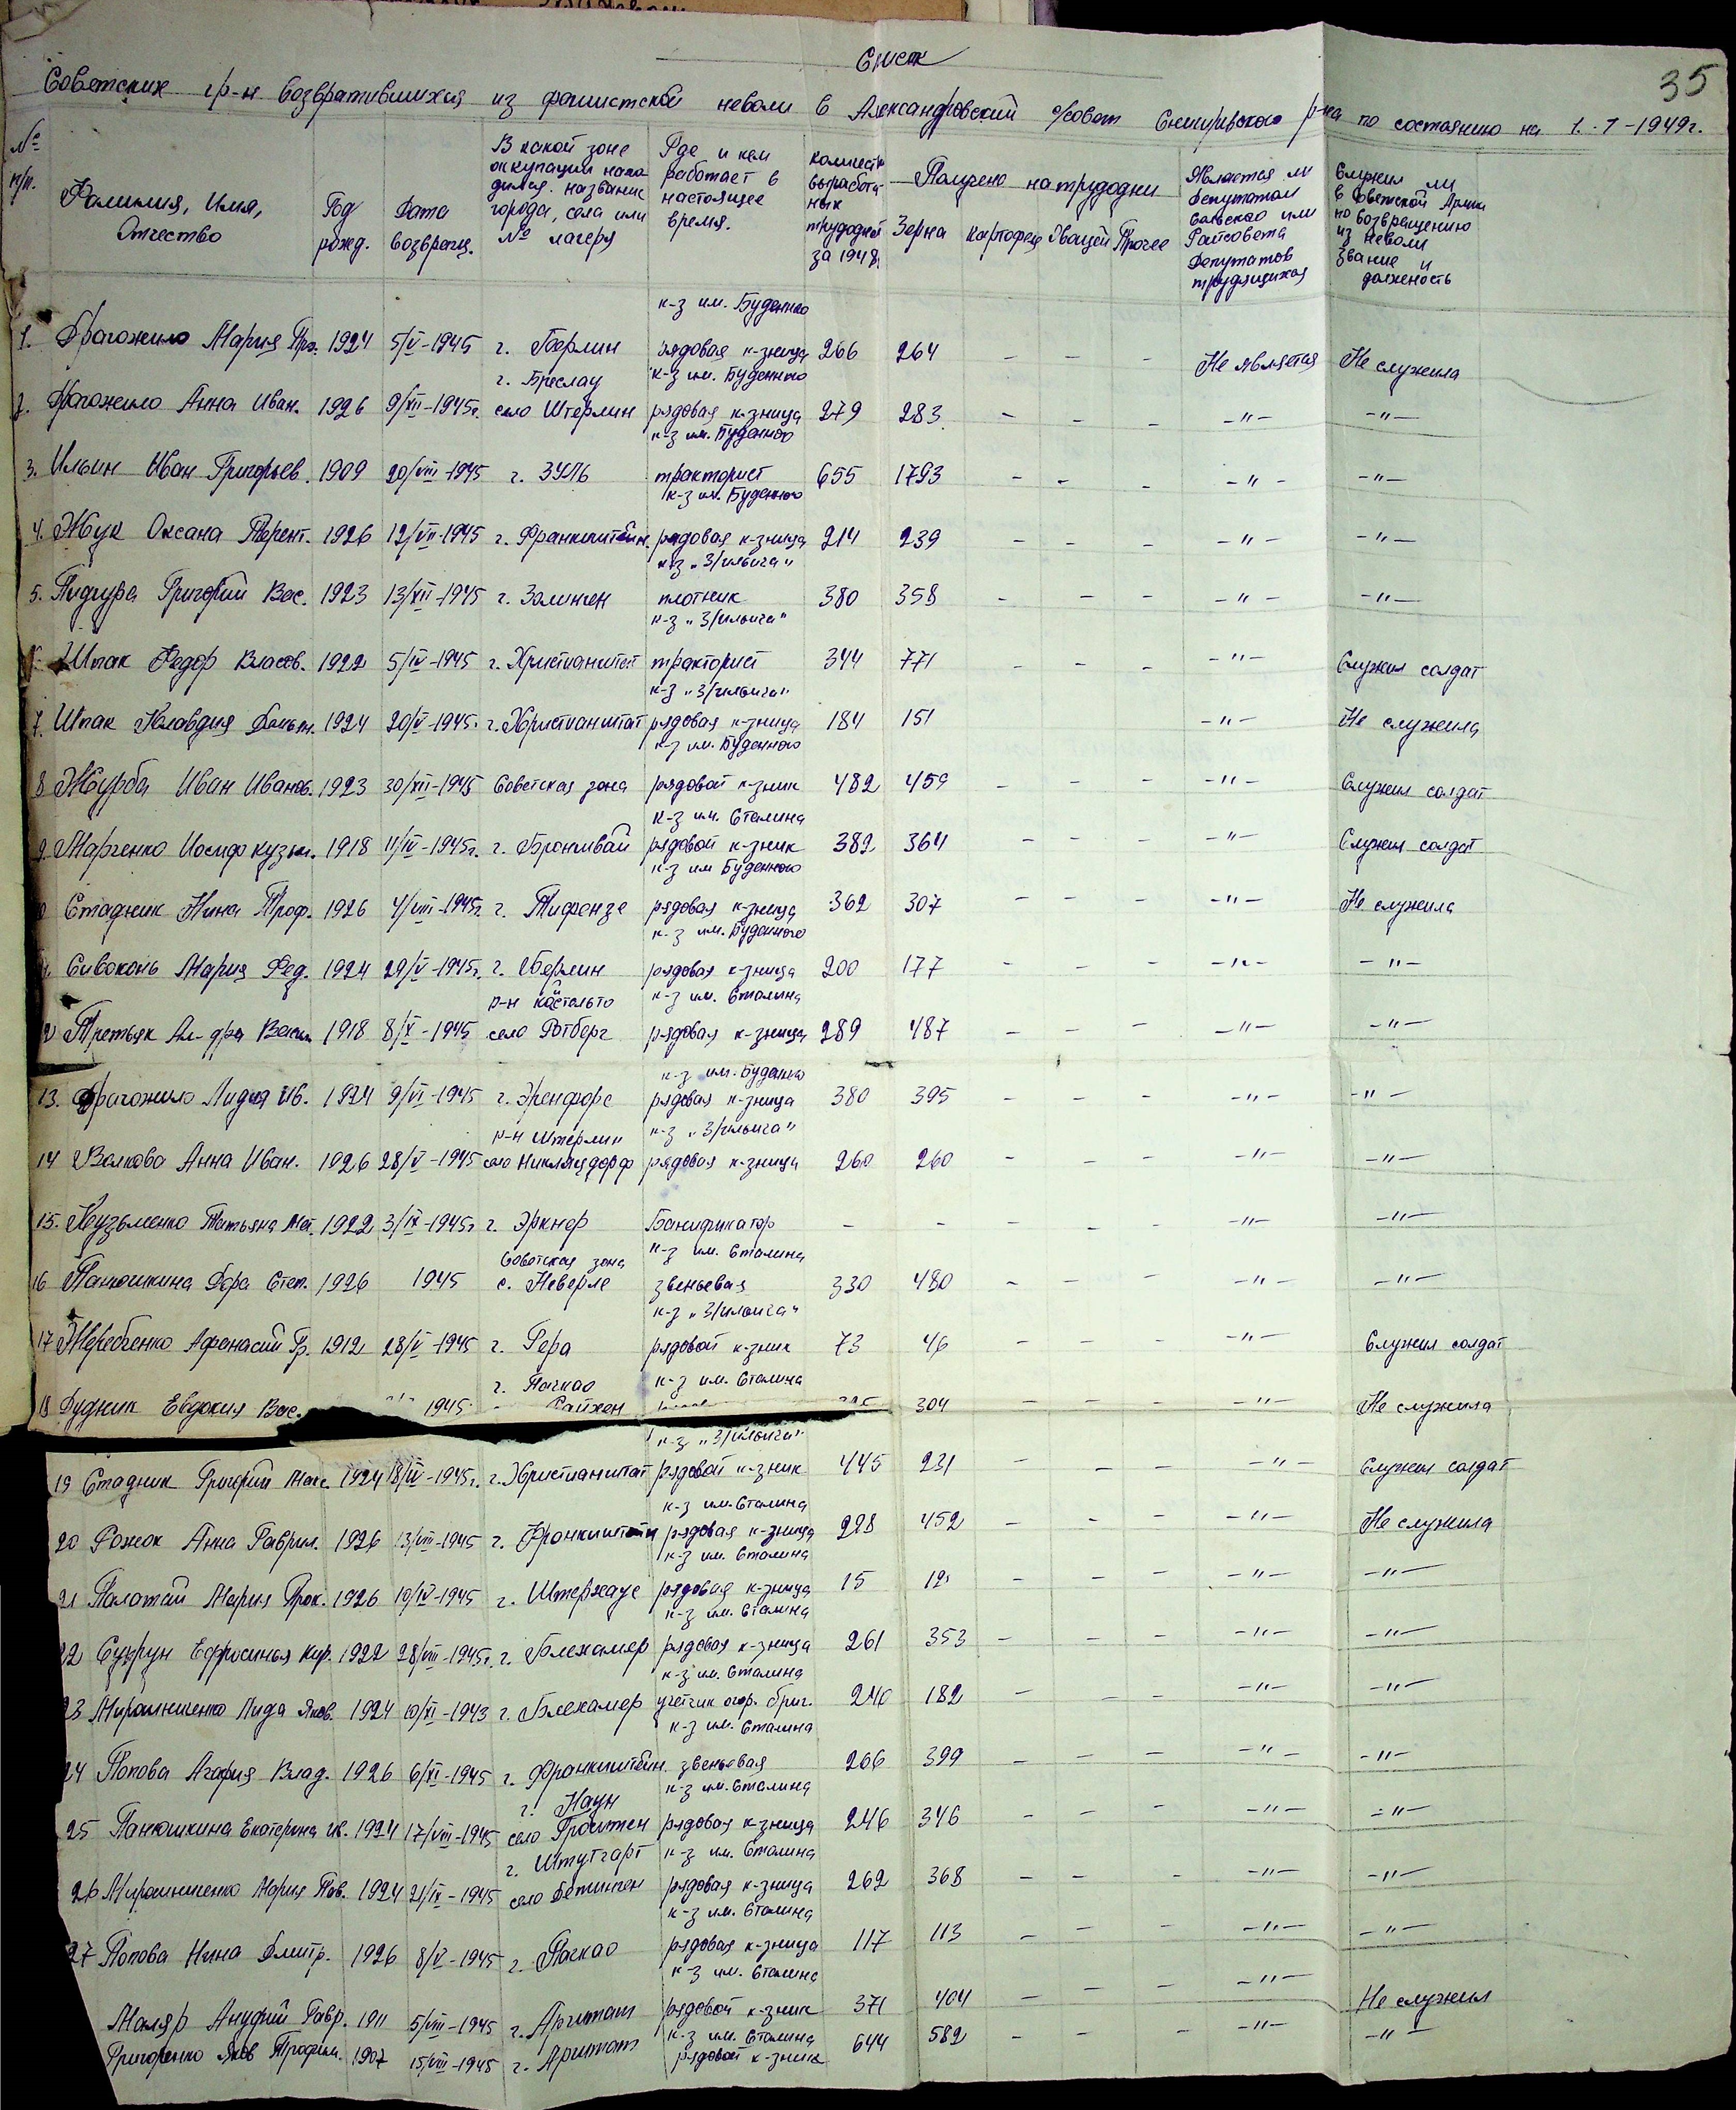 35
Список
Советских гр-н возвратившихся из фашистской неволи в Александровский с/совет Снигиревского р-на по состоянию на 1.-1-1949г.
№ п/п. Фамилия, Имя, Отчество Год рожд. Дата возвращ. В какой зоне оккупации находился. название города, села или № лагеря Где и кем работает в настоящее время. Количест. выработанных трудодней за 1948. Получено на трудодни Зерна Картофеля Овощей Прочее Является ли депутатом сельского или Райсовета депутатов трудящихся Служил ли в Советской Армии по возвращению из неволи звание и должность
к-з им. Буденного
1. Драгожило Мария 1924 5/V-1945 г. Берлин рядовая к-зница 266 264 - - - Не является Не служила
г. Бреслау к-з им. Буденного
2. Драгожило Анна Иван. 1926 9/XII-1945г. село Штерлин рядовая к-зница 279 283 - - - -"- -"-
к-з им. Буденного
3. Ильин Иван Григорьев. 1909 20/VIII-1945 г. ЗУЛЬ тракторист 655 1793 - - - -"- -"-
к-з им. Буденного
4. Жук Оксана Терент. 1926 12/VII-1945 г. Франкштейн. рядовая к-зница 214 239 - - - -"- -"-
к-з "З/Ильича"
5. Пидгура Григорий Вас. 1923 13/XII-1945 г. Золинген плотник 380 358 - - - -"- -"-
к-з "З/Ильича"
6. Шпак Федор Власов. 1922 5/IV-1945 г. Христианштат тракторист 344 771 - - - -"- Служил солдат
к-з "З/Ильича"
7. Шпак Клавдия 1924 20/V-1945г. г. Христианштат рядовая к-зница 184 151 -"- Не служила
к-з им. Буденного
8 Журба Иван Иванов. 1923 30/XII-1945 Советская зона рядовой к-зник 482 459 - - - -"- Служил солдат
к-з им. Сталина
9. Марченко Иосиф кузьм. 1918 11/IV-1945г. г. рядовой к-зник 382 364 - - - -"- Служил солдат
к-з им Буденного
Стадник Нина Троф. 1926 4/VIII-1945г. г. Тифензе рядовая к-зница 362 307 - - - -"- Не служила
к-з им. Буденного
Сивоконь Мария Фед. 1924 29/V-1945г. г. Берлин рядовая к-зница 200 177 - - - -"- -"-
р-н Костельто к-з им. Сталина
Третьяк Ал-дра Васил. 1918 8/X-1945 село Ротберг рядовая к-зница 289 487 - - - -"- -"-
к-з им. Буденного
13. Драгожило Лидия Ив. 1924 9/VI-1945 г. Эренфорс рядовая к-зница 380 395 - - - -"- -"-
р-н Штерлин к-з "З/Ильича"
14 Волкова Анна Иван. 1926 28/V-1945 село Никляцдорф рядовая к-зница 260 260 - - - -"- -"-
15. Кузьменко Татьяна 1922 3/IX-1945г г. Эркнер Бонификатор - - - - - -"- -"-
Советская зона к-з им. Сталина
16 Панюшкина Дора Степ. 1926 1945 с. Неверле звеньевая 330 480 - - - -"- -"-
к-з "З/Ильича"
17 Жеребченко Афонасий Гр. 1912 28/V-1945 г. Гера рядовой к-зник 73 46 - - - -"- Служил солдат
г. Пачкао к-з им. Сталина
18 Дудник Евдокия Вас. 1945 304 - - - -"- Не служила
к-з "З/Ильича"
19 Стадник Григорий Макс. 1924 18/IV-1945г. г. Христианштат рядовой к-зник 445 231 - - - -"- Служил солдат
к-з им. Сталина
20 Рожок Анна Гаврил. 1926 13/VIII-1945 г. Франкштейн рядовая к-зница 228 452 - - - -"- Не служила
к-з им. Сталина
21 Палатай Мария Прок. 1926 10/IV-1945 г. Штерхауе рядовая к-зница 15 12 - - - -"- -"-
к-з им. Сталина
22 Ефросинья Кир. 1922 28/VIII-1945г. г. Блехамер рядовая к-зница 261 353 - - - -"- -"-
к-з им. Сталина
23 Мирошниченко Лида Яков. 1924 10/XI-1943 г. Блехамер учетчик огор. бриг. 240 182 - - - -"- -"-
к-з им. Сталина
24 Попова Агафия Влад. 1926 6/XI-1945 г. Франкштейн. звеньевая 266 399 - - - -"- -"-
г. Наун к-з им. Сталина
25 Панюшкина Екатерина Ив. 1924 17/VIII-1945 село Гроитен рядовая к-зница 246 346 - - - -"- -"-
г. Штутгарт к-з им. Сталина
26 Мирошниченко Мария Пав. 1924 21/IX-1945 село Бетинген рядовая к-зница 262 368 - - - -"- -"-
к-з им. Сталина
27 Попова Нина Дмитр. 1926 8/V-1945 г. Пачкао рядовая к-зница 117 113 - - - -"- -"-
к-з им. Сталина
Маляр Ануфрий Гавр. 1911 5/VIII-1945 г. Арштат рядовой к-зник 371 404 - - - -"- Не служил
к-з им. Сталина
Григоренко Яков Трофим. 1907 15/VIII-1945 г. Арштат рядовой к-зник 644 582 - - - -"- -"-